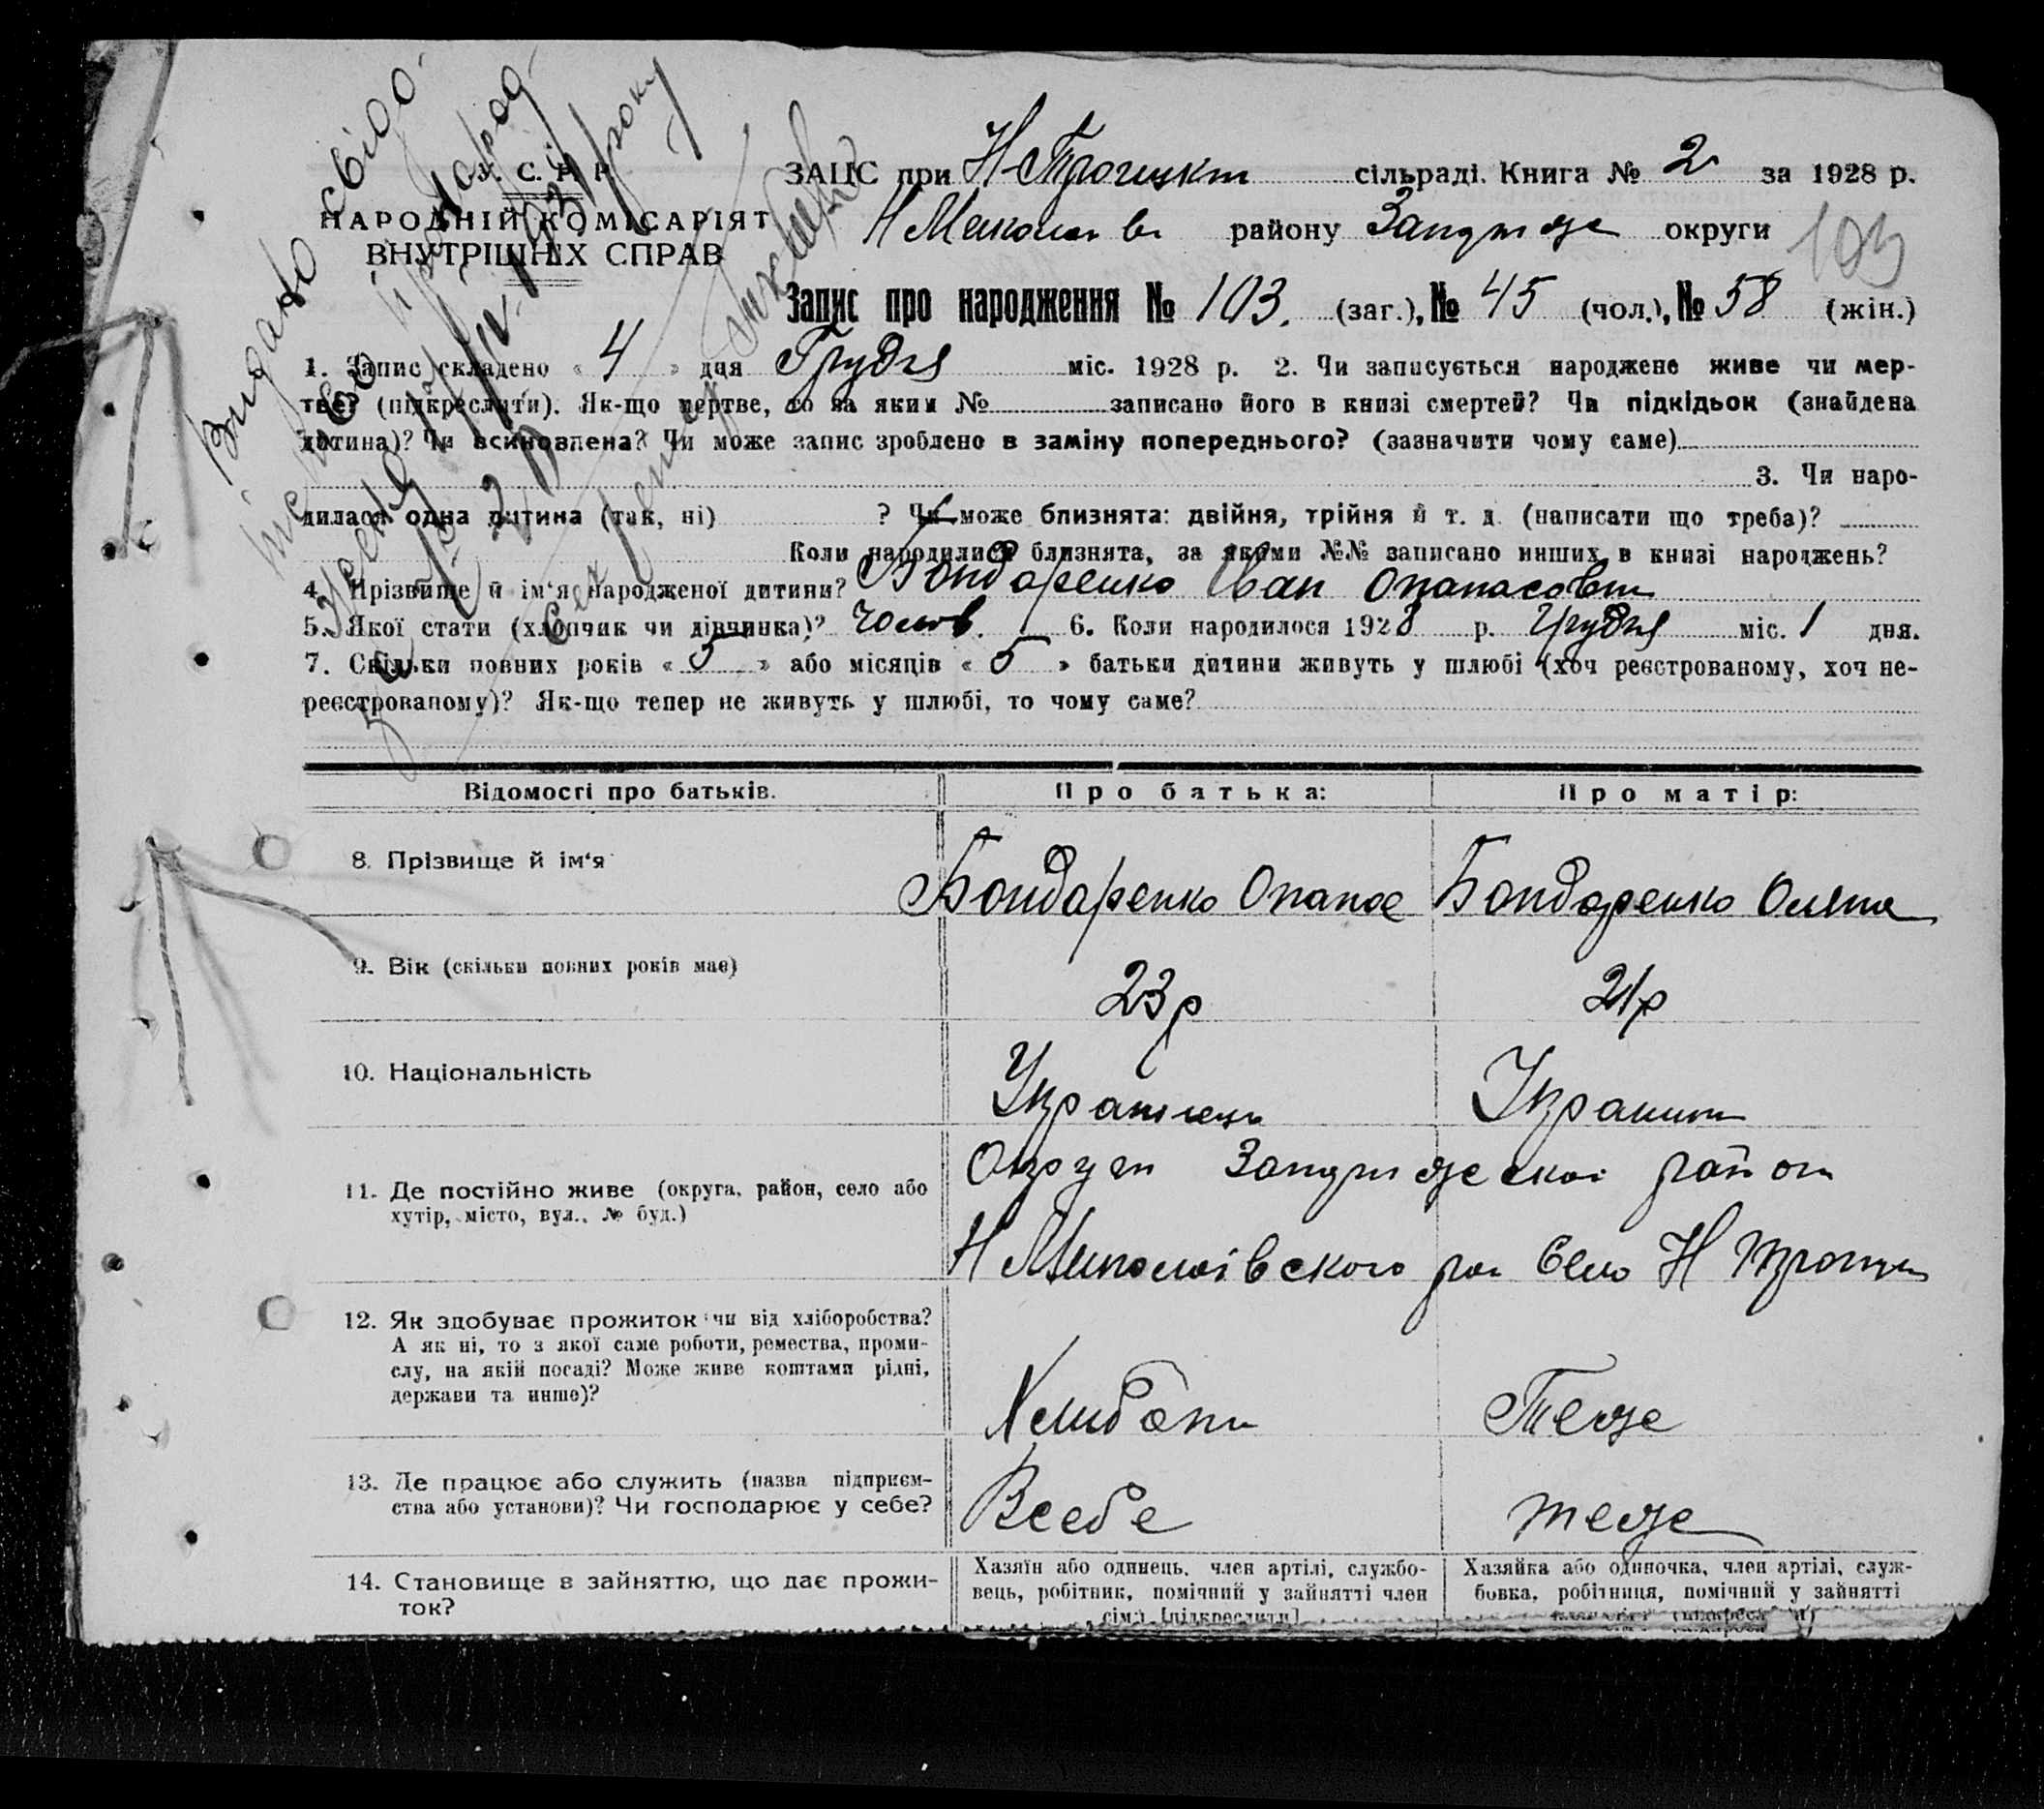 Видано свідо-
У. С. Р. Р.
НАРОДНІЙ КОМІСАРІЯТ
ВНУТРІШНІХ СПРАВ
ЗАЦС при Н-Троицькт сільраді. Книга № 2 за 1928 р.
району округи
103
Запис про народження № 103. (заг.), № 45 (чол.), № 58 (жін.)
1. Запис складено « 4 » дня Грудня міс. 1928 р. 2. Чи записується народжене живе чи мер-
тве? (підкреслити). Як-що мертве, то за яким № записано його в книзі смертей? Чи підкідьок (знайдена
дитина)? Чи всиновлена? Чи може запис зроблено в заміну попереднього? (зазначити чому саме)
3. Чи наро-
дилася одна дитина (так, ні) ? Чи може близнята: двійня, трійня й т. д. (написати що треба)?
Коли народилися близнята, за якими №№ записано инших в книзі народжень?
4. Прізвище й ім'я народженої дитини? Бондаренко Іван Опанасович
5. Якої стати (хлопчик чи дівчинка)? Чолов. 6. Коли народилося 1928 р. Грудня міс. 1 дня.
7. Скільки повних років « 5 » або місяців « 5 » батьки дитини живуть у шлюбі (хоч реєстрованому, хоч не-
реєстрованому)? Як-що тепер не живуть у шлюбі, то чому саме?
Відомості про батьків. Про батька: Про матір:
8. Прізвище й ім'я Бондаренко Опанас Бондаренко
9. Вік (скільки повних років має) 23р 21р
10. Національність Українець
11. Де постійно живе (округа, район, село або
хутір, місто, вул., № буд.)
Н Миколаівского Село Н
12. Як здобуває прожиток чи від хліборобства?
А як ні, то з якої саме роботи, ремества, проми-
слу, на якій посаді? Може живе коштами рідні,
держави та инше)?
Теже
13. Де працює або служить (назва підприєм-
ства або установи)? Чи господарює у себе?
Всебе теже
14. Становище в зайняттю, що дає прожи-
ток?
Хазяїн або одинець, член артілі, службо-
вець, робітник, помічний у зайнятті член
сім'ї [підкреслити]
Хазяйка або одиночка, член артілі, служ-
бовка, робітниця, помічний у зайнятті